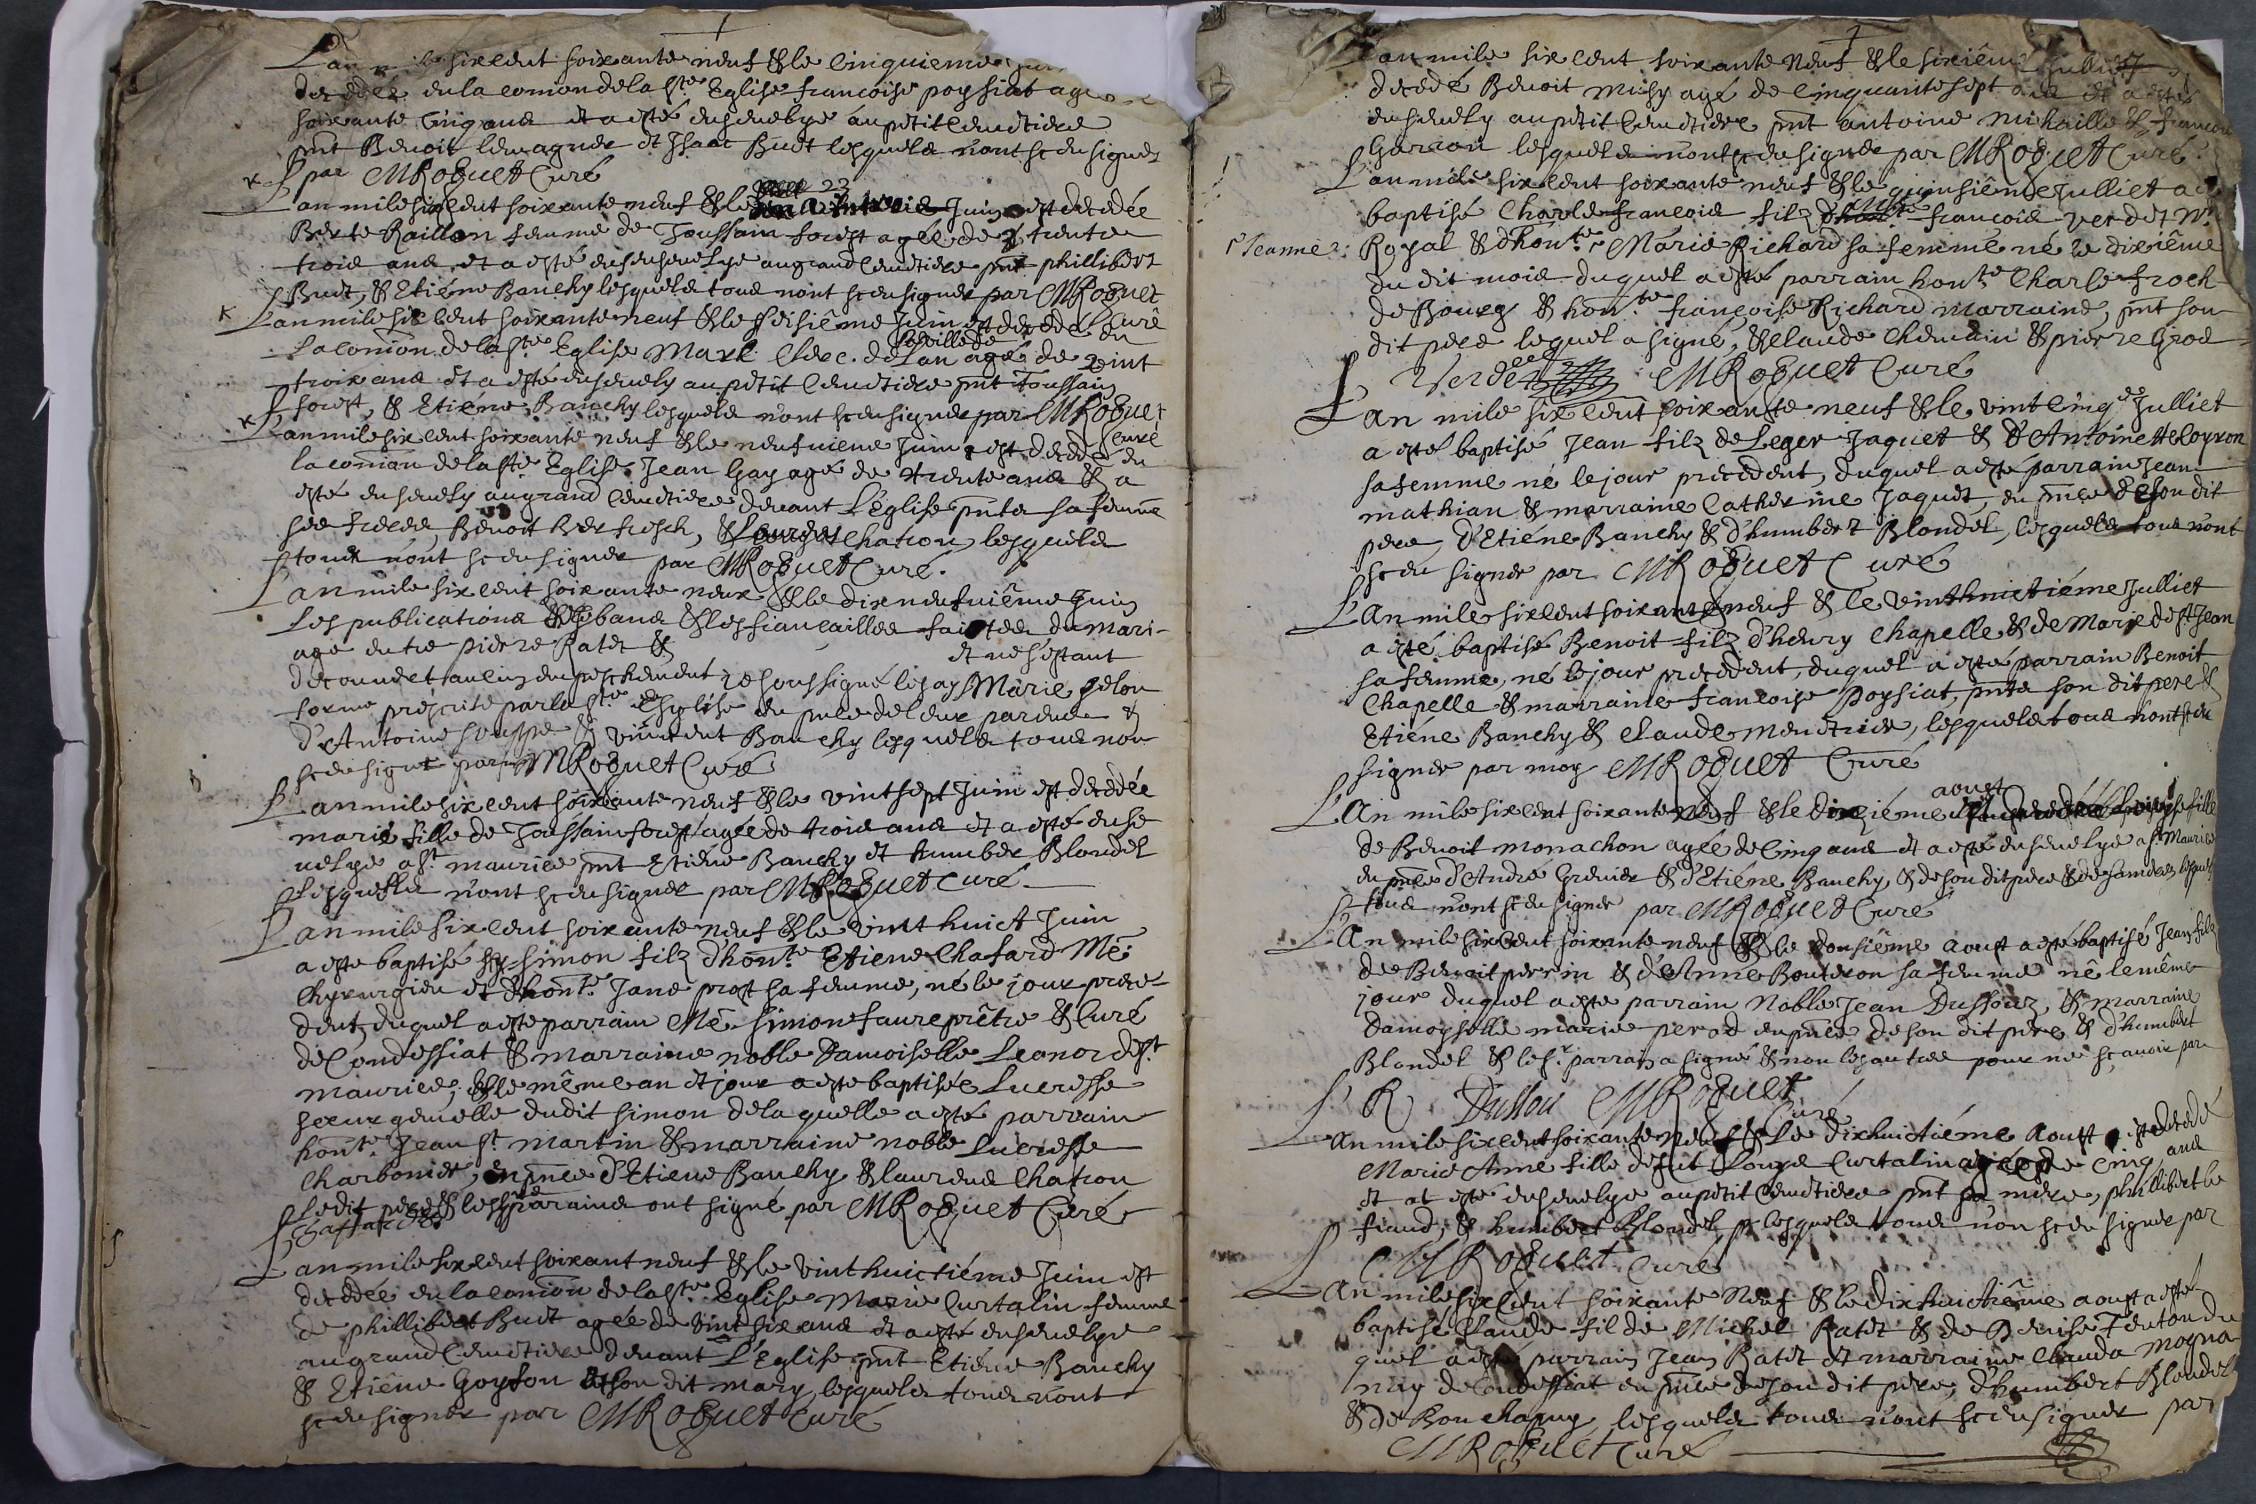 L'an mile six cent soixante neuf & le cinquieme
decedée en la com̃on de la ste Eglise francoise poysiat agée
soixante cinq ans et a esté ensevelye au petit cemetiere
pnt Benoit et Isaac Buet lesquels n'ont sceu signer
par MRoguet Curé
L'an mile six cent soixante neuf & le 23 Juin est decedée
Berte Raillon femme de Toussain forest agée de trente
trois ans et a esté ensevelye au grand cemetiere pnt phillibert
Buet, & Etiéne Banchy lesquels tous n'ont sceu signer par MRoguet
Curé
L'an mile six cent soixante neuf & le seisiême Juin est decedé en
la com̃on de la ste Eglise Mark Clerc de la ville de agé de vint
trois ans et a esté ensevely au petit cemetiere pnt Toussain
forest, & Etiéne Banchy lesquels n'ont sceu signer par MRoguet
Curé
L'an mile six cent soixante neuf & le neufvieme Juin est decedé en
la com̃on de la ste Eglise Jean Gay agé de trente ans & a
esté ensevely au grand cemetiere devant L'Eglise pnts sa femme
ses freres, Benoit & Laurens Chatron, lesquels
tous n'ont sceu signer par MRoguet Curé.
L'an mile six cent soixante neuf & le dix neufviême Juin
Les publications des bans & les fiancailles faictes du mari-
age entre pierre Ratet &
et ne s'estant
decouvert aucun empeschement je soussigné les ay Marie selon
forme prescrite par la ste Esglise en pnce de leur parens &
d'Antoine & vincent Banchy lesquels tous n'on
sceu signe par MRoguet Curé
L'an mile six cent soixante neuf & le vint sept Juin est decedée
marie fille de Toussain forest agée de trois ans et a esté ense
velye a st maurice pnt Etiéne Banchy et humber Blondel
Lesquels n'ont sceu signer par MRoguet Curé
L'an mile six cent soixante neuf & le vint huict Juin
a esté baptisé Simon filz d'honte Etiene Chafard Me
Chyrurgien et d'honte Jane prost sa femme, né le jour prece-
dent, duquel a esté parrain Me Simon faure prêtre & Curé
de Condessiat & marraine noble Damoiselle Leonor de st
maurice, & le même an et jour a esté baptisée Lucresse
sœur gemelle dudit Simon de la quelle a esté parrain
honte Jean st martin & marraine noble Lucresse
Charbonier, en pnce d'Etiene Banchy & Laurens Chatron
Ledit pere & les parrains ont signé par MRoguet Curé
L'an mile six cent soixant neuf & le vint huictiéme Juin est
decedée en la com̃ion de la ste Eglise Marie Curtalin femme
de phillibert Buet agée de vint six ans et a esté ensevelye
au grand Cemetiere devant L'Eglise pnt Etiéne Banchy
& Etiéne Goyfon & son dit mary, lesquels tous n'ont
sceu signer par MRoguet Curé
L'an mile six cent soixante neuf & le sixiême Julliet
decedé Benoit Michy agé de cinquante sept ans et a esté
ensevely au petit cemetiere pnt antoine Michaille & francois
Garron lesquels n'ont sceu signer par MRoguet Curé
L'an mile six cent soixante neuf & le quinsiême Julliet a
baptisé Charle francois filz francois verdet Nre
Jeanne Royal & d'honte Marie Richard sa femme né le dixiême
du dit mois duquel a esté parrain honte Charle froch
de Bourg & honte francoise Richard marraine, pnt son
dit pere lequel a signé, & Claude Chemain & pierre Grod
Verdet MRoguet Curé
L'an mile six cent soixante neuf & le vint cinqe Julliet
a esté baptisé Jean filz de Leger Jaquet & d'Antoinette Coyron
sa femme né le jour precedent, duquel a esté parrain Jean
mathian & marraine Catherine Jaquet, en pnce de son dit
pere, d'Etiéne Banchy & d'humbert Blondel, lesquels tous n'ont
sceu signer par MRoguet Curé
L'An mile six cent soixante neuf & le vinthuictiéme Julliet
a esté baptisé Benoit filz d'henry Chapelle & de Marie de st Jean
sa femme, né le jour precedent, duquel a esté parrain Benoit
Chapelle & marraine francoise Poysiat, pnts son dit pere &
Etiéne Banchy & Claude Monetrier, lesquels tous n'ont sceu
signer par moy MRoguet Curé
L'An mile six cent soixante neuf & le dixiéme aoust est decedée fille
de Benoit monachon agée de cinq ans et a esté ensevelye a st Maurice
en pnce d'André Grenier & d'Etiéne Banchy, & de son dit pere lesquels
tous n'ont sceu signer par MRoguet Curé
L'An mile six cent soixante neuf & le donsiême aoust a esté baptisé Jean filz
de Benoit perrin & d'Anne Bouteron sa femme né le même
jour duquel a esté parrain Noble Jean Dussouz, & marraine
Damoyselle marie perod en pnce de son dit pere & d'humbert
Blondel & le sr parrain a signé & non les autres pour ne sçavoir par
Dussou MRoguet
Curé
L'an mile six cent soixante neuf & le dixhuictiéme aoust est decedé
Marie Anne fille de fut Louys Curtalin agée de cinq ans
et at esté ensevelye au petit cemetiere pnt sa mere, phillibert be
friaud, & humbert Blondel, lesquels tous n'on sceu signer par
MRoguet Curé
L'An mile six cent soixante neuf & le dixhuictiême aoust a esté
baptisé Claude fil de Michel Ratet & de Denise Tenton du
quel a esté parrain Jean Ratet et marraine Clauda Mogna
ruy de Condessiat en pnce de son dit pere, d'humbert Blondel
& de Bon chapuy lesquels tous n'ont sceu signer par
MRoguet Curé